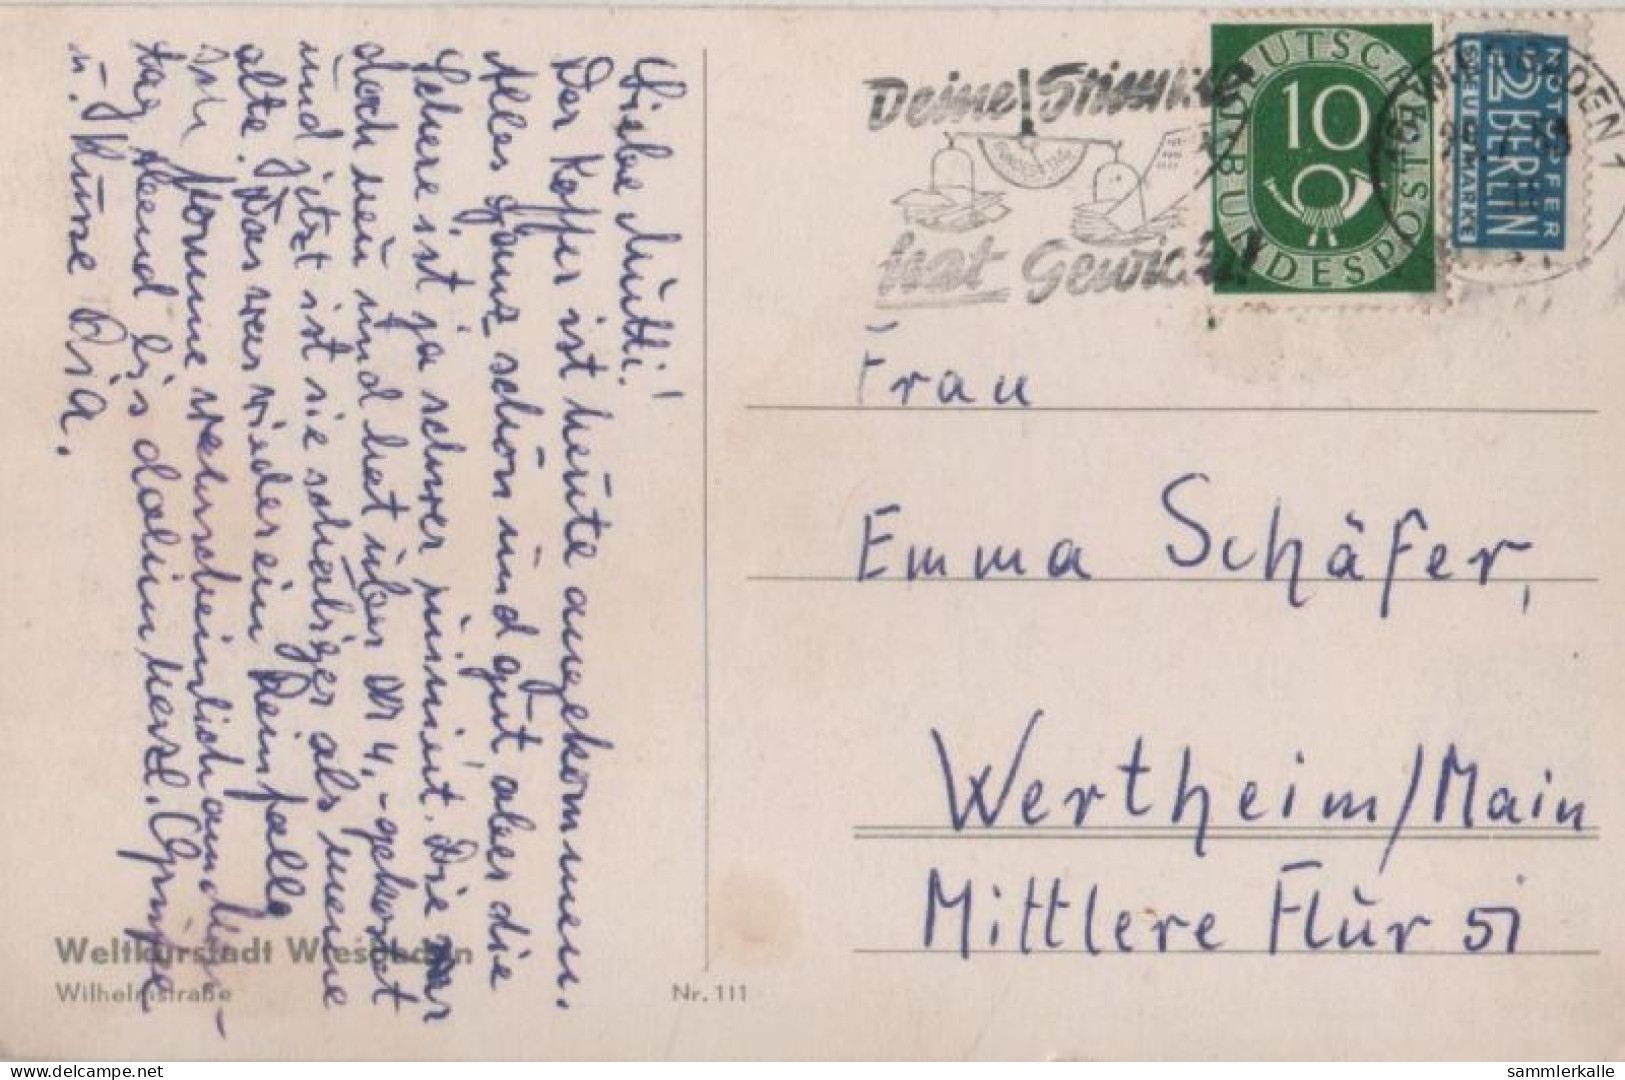 Liebe Mutti!
Der Koffer ist heute angekommen.
Alles ganz schön und gut aber die
Schere ist ja schwer ruiniert. Die war
doch neu und hat über DM 4,- gekostet
und jetzt ist sie schäbiger als meine
alte. Das war wieder ein Reinfall.
Ich komme wahrscheinlich
tag Abend bis dahin herzl. Grüße
u. Küsse Ria.
Weltkurstadt Wiesbaden
Wilhelmstraße
Nr. 111
Deine Stimme
hat Gewicht!
DEUTSCHE BUNDESPOST
10
NOTOPFER
2 BERLIN
STEUERMARKE
WIESBADEN 1
Frau
Emma Schäfer,
Wertheim/Main
Mittlere Flur 51
www.delcampe.net
sammlerkalle